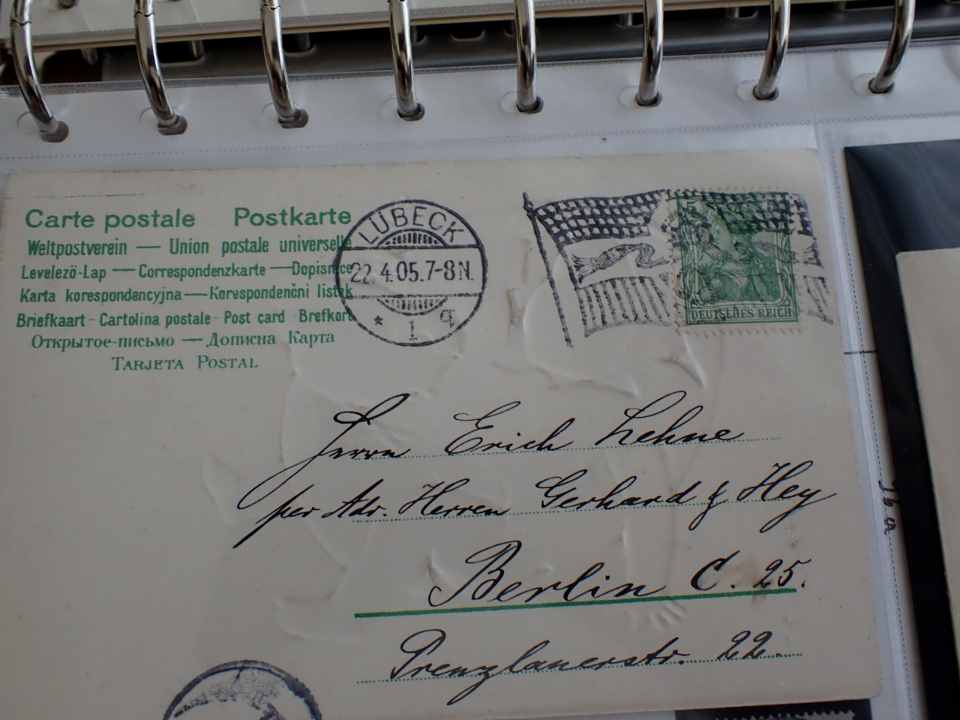 Carte postale Postkarte
Weltpostverein — Union postale universelle
Levelező-Lap — Correspondenzkarte — Dopisnice
Karta korespondencyjna — Korespondenční listek
Briefkaart - Cartolina postale - Post card - Brefkort
Открытое-письмо — Дописна Карта
TARJETA POSTAL
LÜBECK
22.4.05.7-8N.
* 1 q
DEUTSCHES REICH
Herrn Erich Lehne
per Adr. Herren Gerhard & Hey
Berlin C. 25.
Prenzlauerstr. 22.